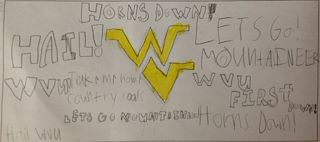 HORNS DOWN!
HAIL!
LETS GO!
MOUNTAINEER
WVU
Take me home
country roads
WVU
FIRST
DOWN!
LETS GO MOUNTAINEER
Horns Down!
Hail WVU